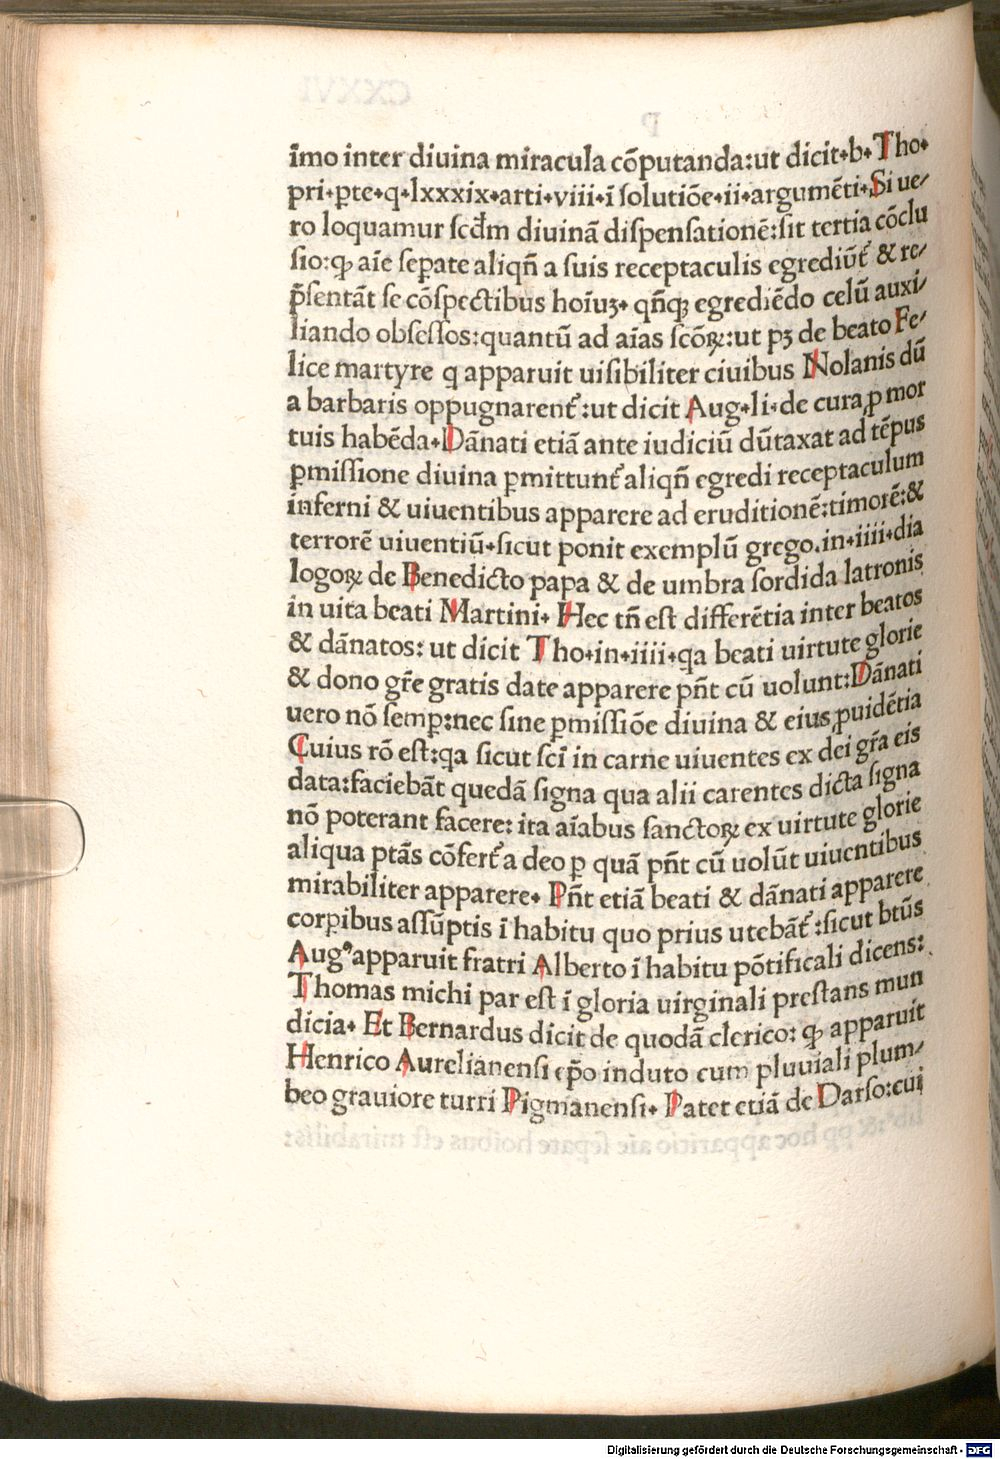 īmo inter diuina miracula cōputanda:ut dicit·b·Tho·
pri·ꝑte·q·lxxxix·arti·viii·ī ſolutiōe·ii·argumēti·Si ue/
ro loquamur ſcd̄m diuinā diſpenſationē:ſit tertia cōclu
ſio:ꝙ aīe ſeꝑate aliqn̄ a ſuis receptaculis egrediūt᷑ & re/
p̄ſentāt ſe cōſpectibus hoīuꝫ· qn̄qꝫ egrediēdo celū auxi/
liando obſeſſos:quantū ad aīas ſcōꝝ:ut pꝫ de beato Fe/
lice martyre q apparuit uiſibiliter ciuibus Nolanis dū
a barbaris oppugnarent᷑:ut dicit Aug·li·de cura ꝓ mor
tuis habēda·Dānati etiā ante iudiciū dūtaxat ad tēpus
ꝑmiſſione diuina ꝑmittunt᷑ aliqn̄ egredi receptaculum
inferni & uiuentibus apparere ad eruditionē:timorē:&
terrorē uiuentiū·ſicut ponit exemplū grego.in·iiii·dia
logoꝝ de Benedicto papa & de umbra ſordida latronis
in uita beati Martini· Hec tn̄ eſt differētia inter beatos
& dānatos: ut dicit Tho·in·iiii·qa beati uirtute glorie
& dono gr̄e gratis date apparere pn̄t cū uolunt:Dānati
uero nō ſemꝑ:nec ſine ꝑmiſſiōe diuina & eius ꝓuidētia
Cuius rō eſt:qa ſicut ſcī in carne uiuentes ex dei gr̄a eis
data:faciebāt quedā ſigna qua alii carentes dicta ſigna
nō poterant facere: ita aīabus ſanctoꝝ ex uirtute glorie
aliqua ptās cōfert᷑ a deo ꝑ quā pn̄t cū uolūt uiuentibus
mirabiliter apparere· Pn̄t etiā beati & dānati apparere
corꝑibus aſſūptis ī habitu quo prius utebāt᷑:ſicut btūs
Augꝰ apparuit fratri Alberto ī habitu pōtificali dicens:
Thomas michi par eſt ī gloria uirginali preſtans mun
dicia· Et Bernardus dicit de quodā clerico: ꝙ apparuit
Henrico Aurelianenſi ep̄o induto cum pluuiali plum/
beo grauiore turri Pigmanenſi· Patet etiā de Darſo:cui
Digitalisierung gefördert durch die Deutsche Forschungsgemeinschaft - DFG